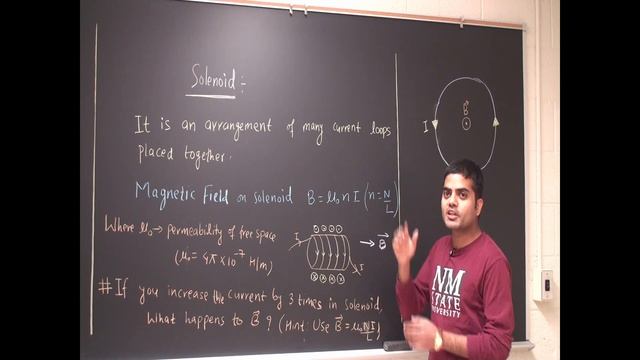 Solenoid:-
It is an arrangement of many current loops
placed together.
Magnetic Field on solenoid B = μ₀ n I (n = N/L)
Where μ₀ → permeability of free space
(μ₀ = 4π × 10⁻⁷ H/m)
I
I
→ B⃗
# If you increase the current by 3 times in solenoid,
What happens to B⃗ ? (Hint: Use B⃗ = μ₀NI/L)
B⃗
I
NM
STATE
UNIVERSITY